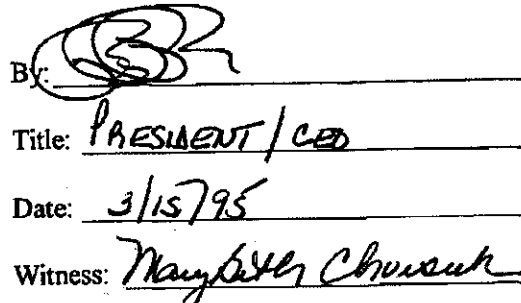 By:
Title: PRESIDENT / CEO
Date: 3/15/95
Witness: Marybeth